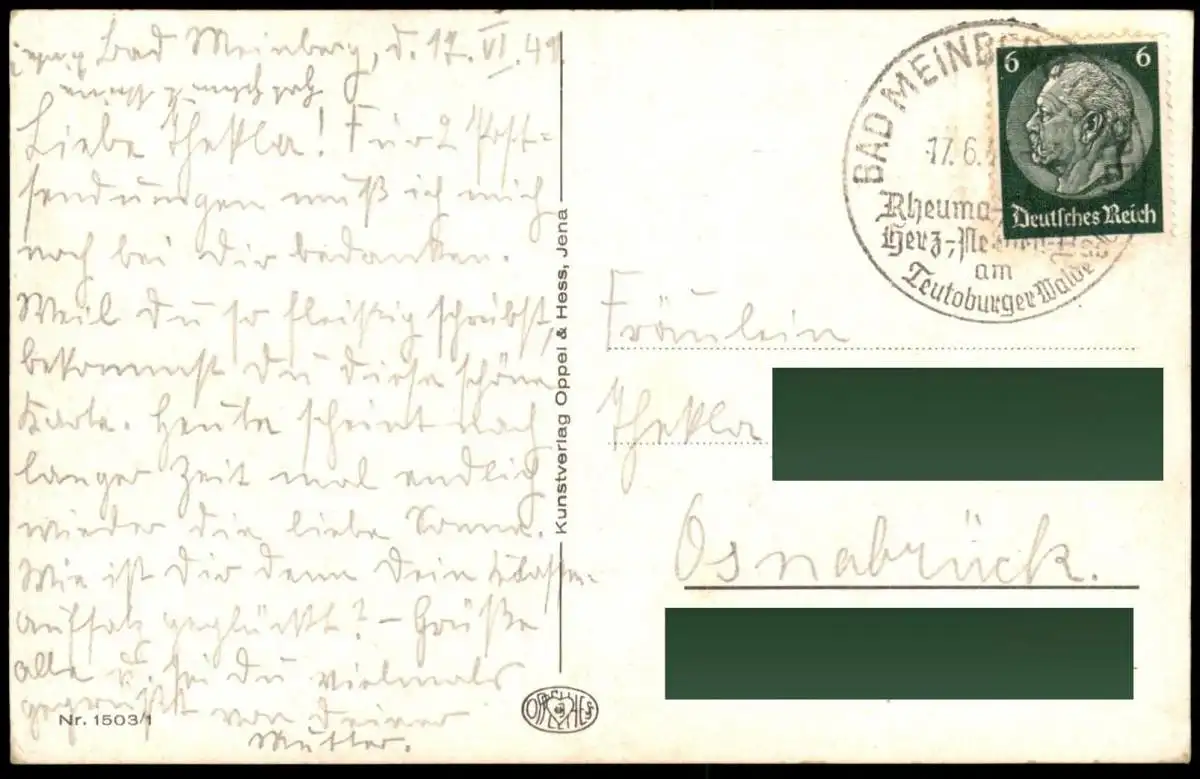 Bad Meinberg, d. 17. VI. 41.
Liebe Thekla! Für 2 Post-
sendungen muß ich mich
noch bei Dir bedanken.
Weil du so fleißig schreibst,
bekommst du diese schöne
Karte. Heute scheint nach
langer Zeit mal endlich
wieder die liebe Sonne.
Wie ist Dir denn Dein Klassen-
aufsatz geglückt? – Grüße
alle u. sei du vielmals
gegrüßt von Deiner
Mutter.
Nr. 1503/1
Kunstverlag Oppel & Hess, Jena
BAD MEINBE
17.6.4
Rheuma-
Herz-,
am
Teutoburger Walde
6 6
Deutsches Reich
Fräulein
Thekla
Osnabrück.